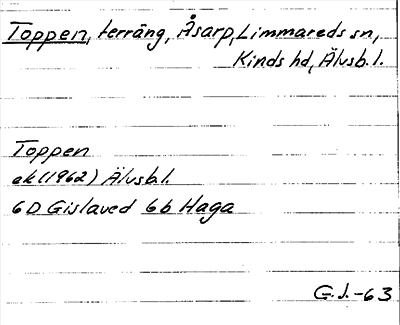 Toppen, terräng, Åsarp, Limmareds sn,
Kinds hd, Älvsb. l.
Toppen
ek (1962) Älvsb.l.
6D Gislaved 6b Haga
G.J.-63